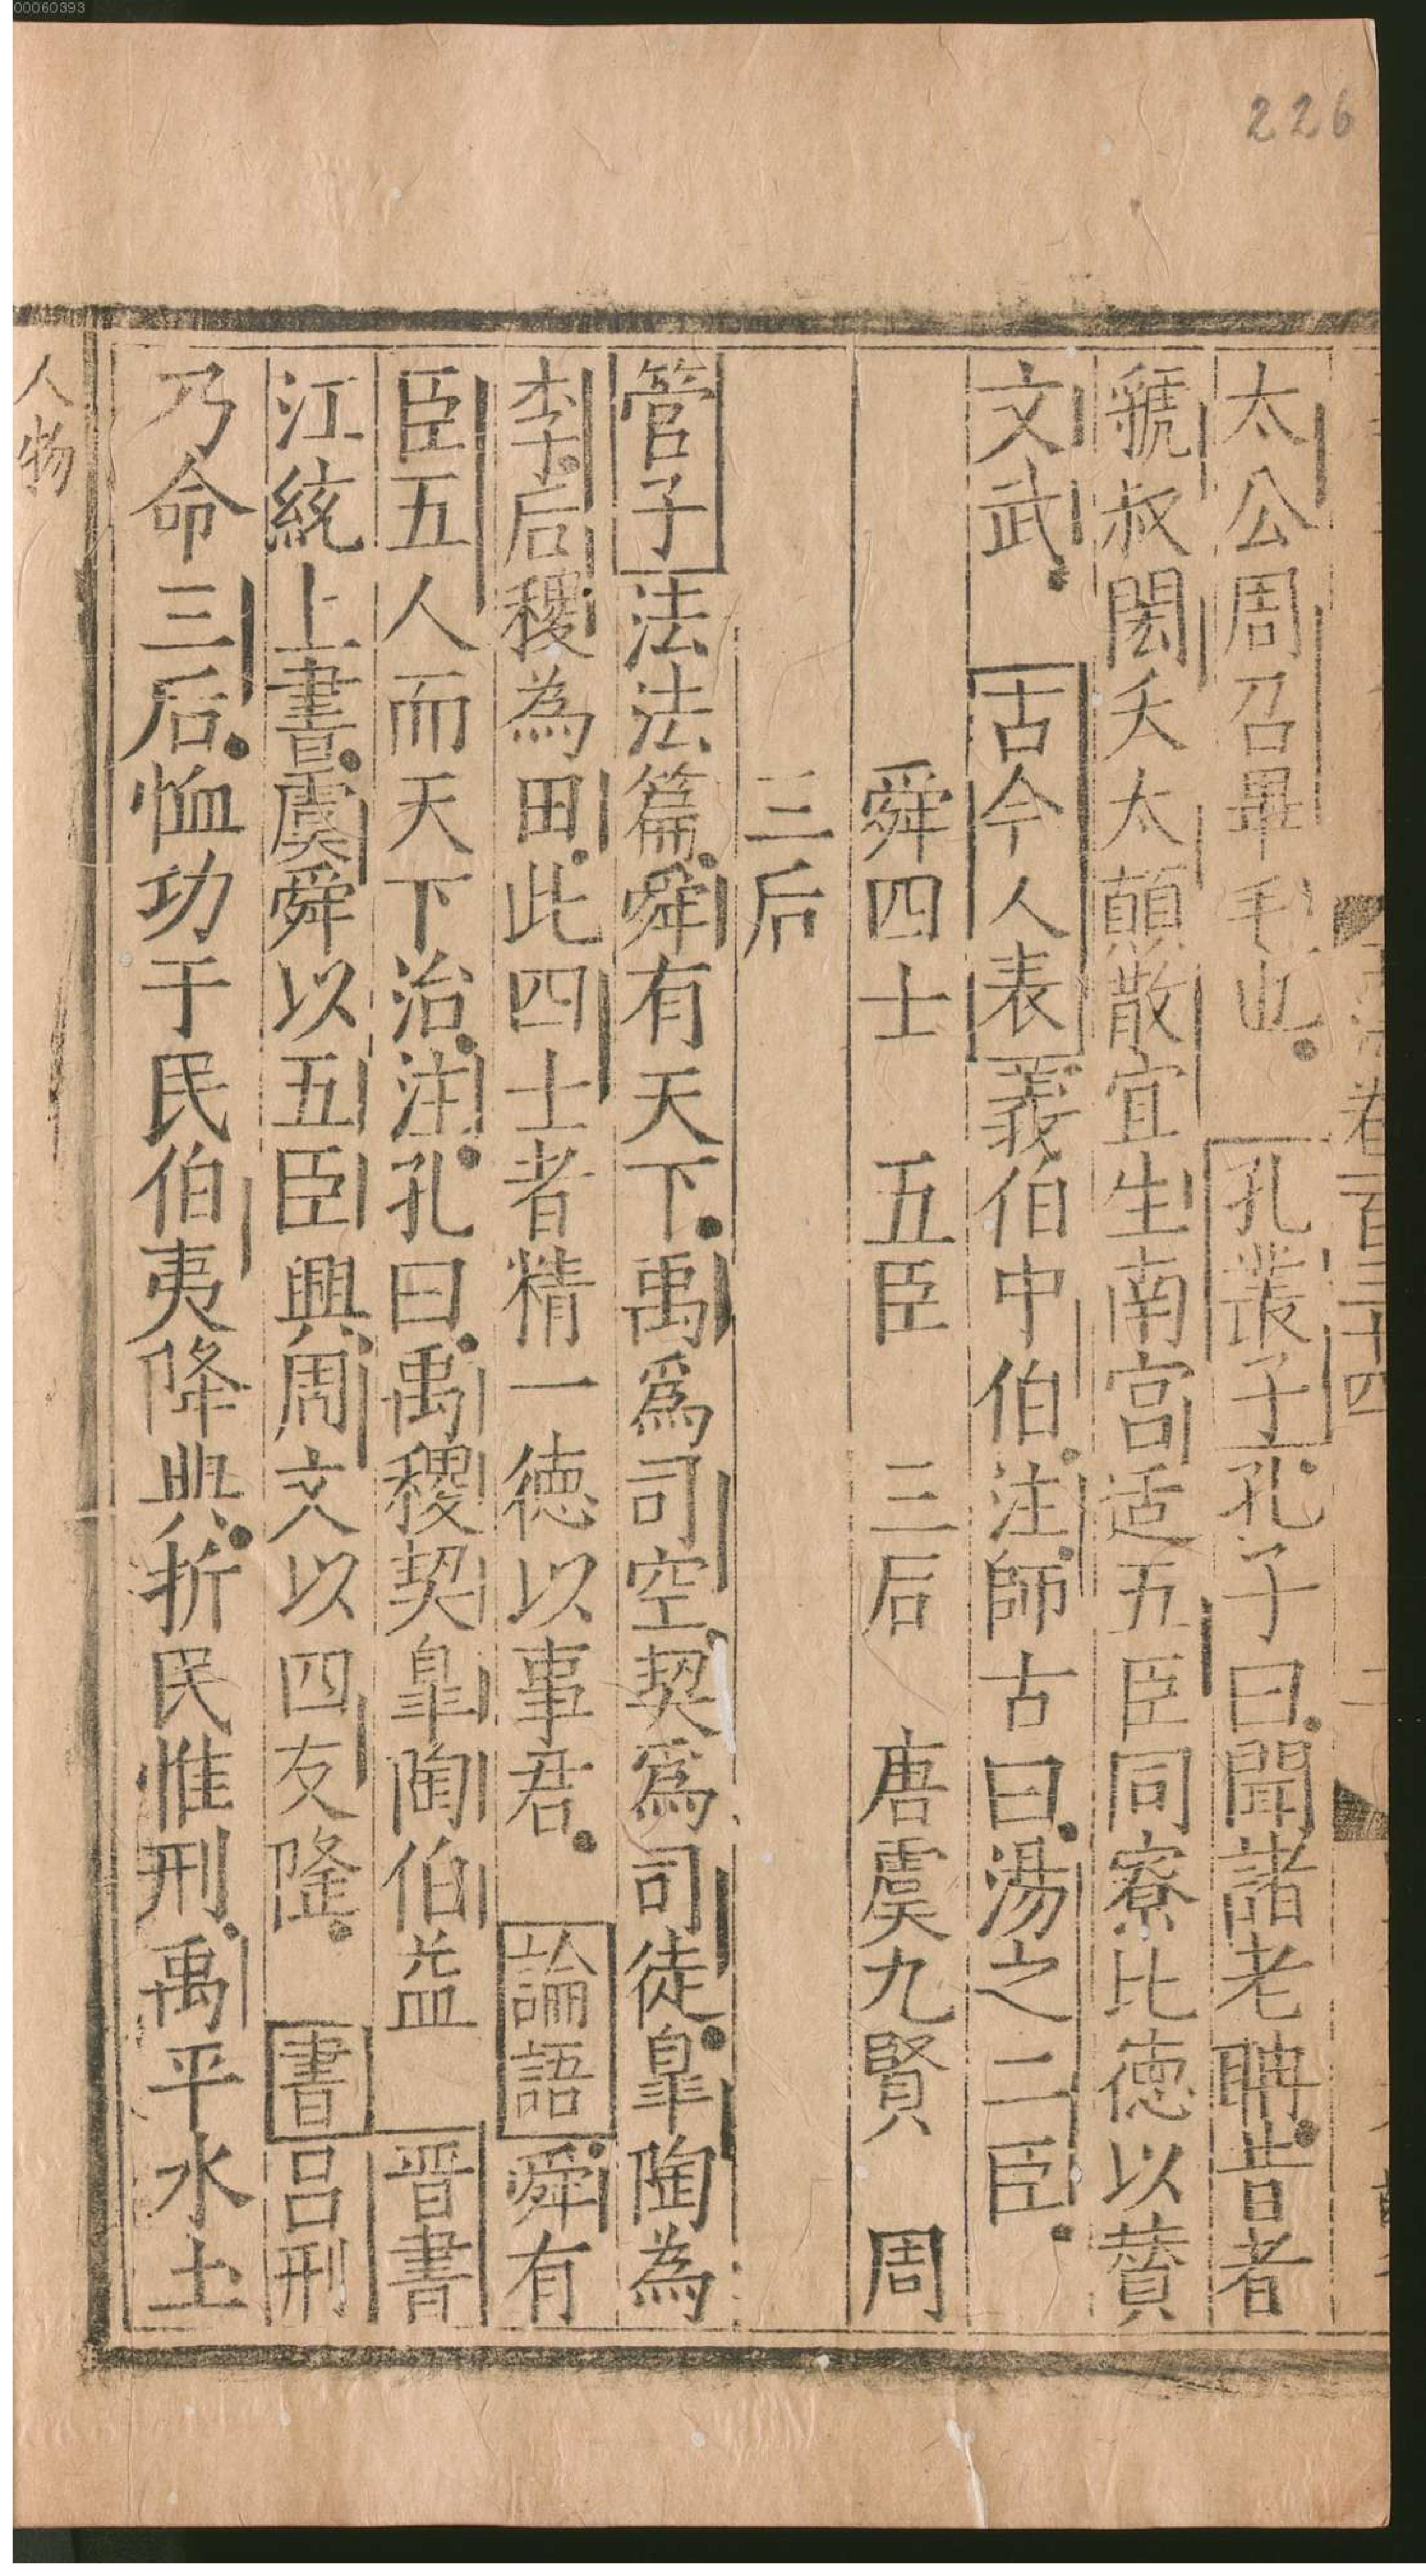 00060393
226
卷一百三十四
太公周召畢毛也孔叢子孔子曰聞諸老聃昔者
虢叔閎夭太顛散宜生南宮适五臣同寮比德以賛
文武古今人表義伯中伯注師古曰湯之二臣
舜四士 五臣 三后 唐虞九賢 周
三后
管子法法篇舜有天下禹爲司空契爲司徒臯陶為
李后稷為田此四士者精一德以事君論語舜有
臣五人而天下治注孔曰禹稷契臯陶伯益晋書
江統上書虞舜以五臣興周文以四友隆書吕刑
乃命三后恤功于民伯夷降典折民惟刑禹平水土
人物